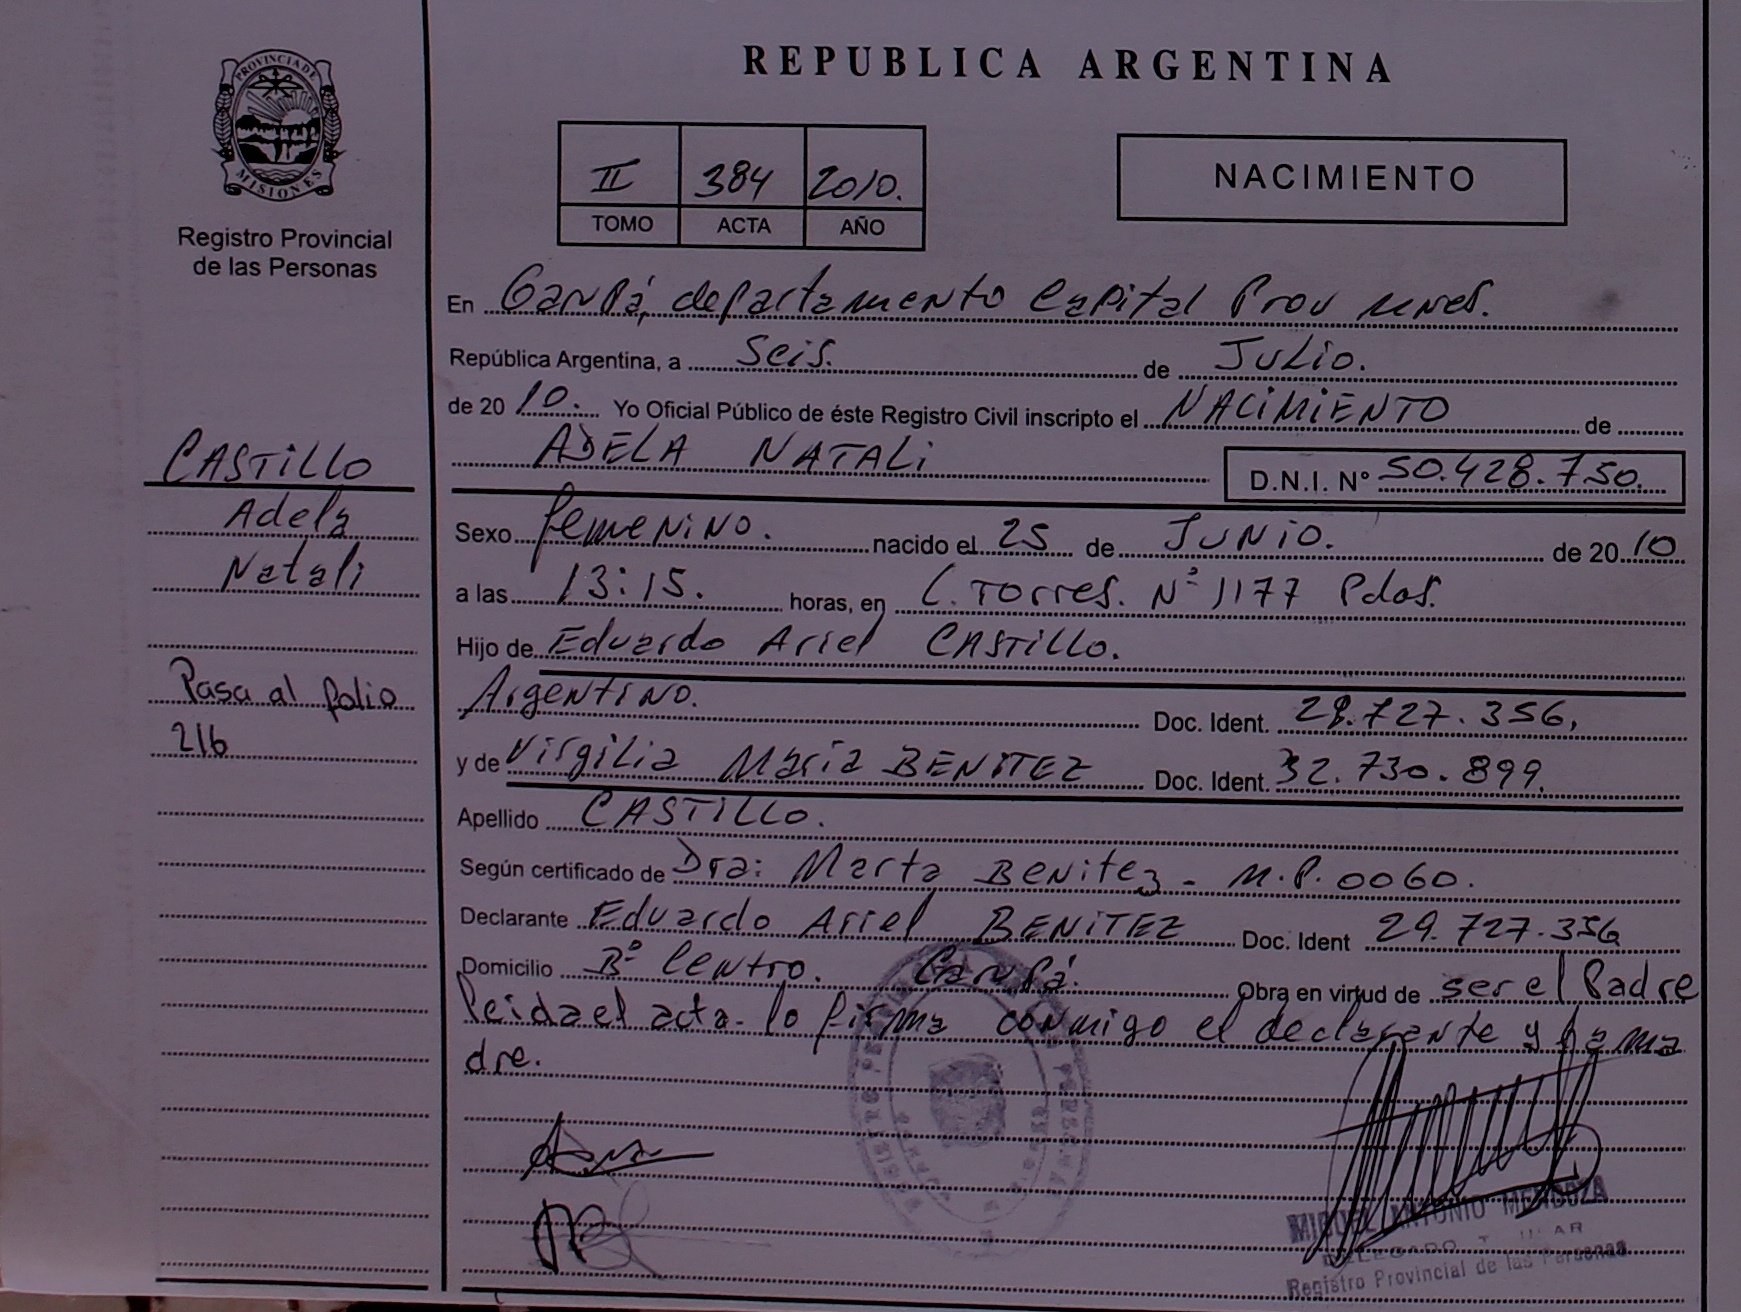 PROVINCIA DE
MISIONES
Registro Provincial
de las Personas
CASTILLO
Adela
Natali
Pasa al folio
216
REPUBLICA ARGENTINA
II 384 2010.
TOMO ACTA AÑO
NACIMIENTO
En Garupá, departamento Capital Prov Mnes.
República Argentina, a Seis. de Julio.
de 20 10. Yo Oficial Público de éste Registro Civil inscripto el NACIMIENTO de
ADELA NATALI D.N.I. Nº 50.428.750.
Sexo femenino. nacido el 25 de JUNIO. de 20 10
a las 13:15. horas, en C. Torres. Nº 1177 Pdas.
Hijo de Eduardo Ariel CASTILLO.
Argentino. Doc. Ident. 29.727.356,
y de Virgilia María BENITEZ Doc. Ident. 32.730.899.
Apellido CASTILLO.
Según certificado de Dra: Marta BENitez - M.P. 0060.
Declarante Eduardo Ariel BENITEZ Doc. Ident 29.727.356
Domicilio Bº Centro. Garupá. Obra en virtud de ser el Padre
leida el acta lo firma conmigo el declarante y la ma
dre.
MIGUEL ANTONIO MENDOZA
DELEGADO TITULAR
Registro Provincial de las Personas